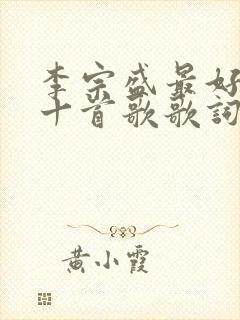 李宗盛最好
十首歌歌詞
黄小霞